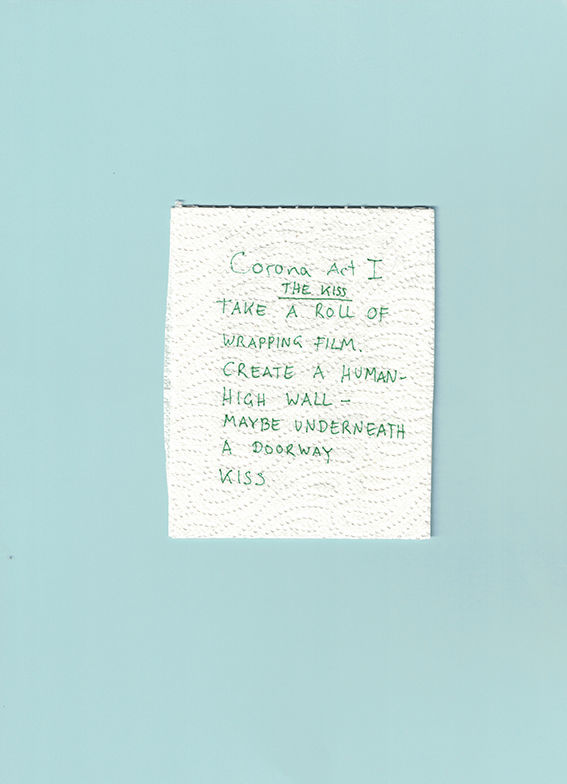 Corona Act I
THE KISS
TAKE A ROLL OF
WRAPPING FILM.
CREATE A HUMAN-
HIGH WALL -
MAYBE UNDERNEATH
A DOORWAY
KISS